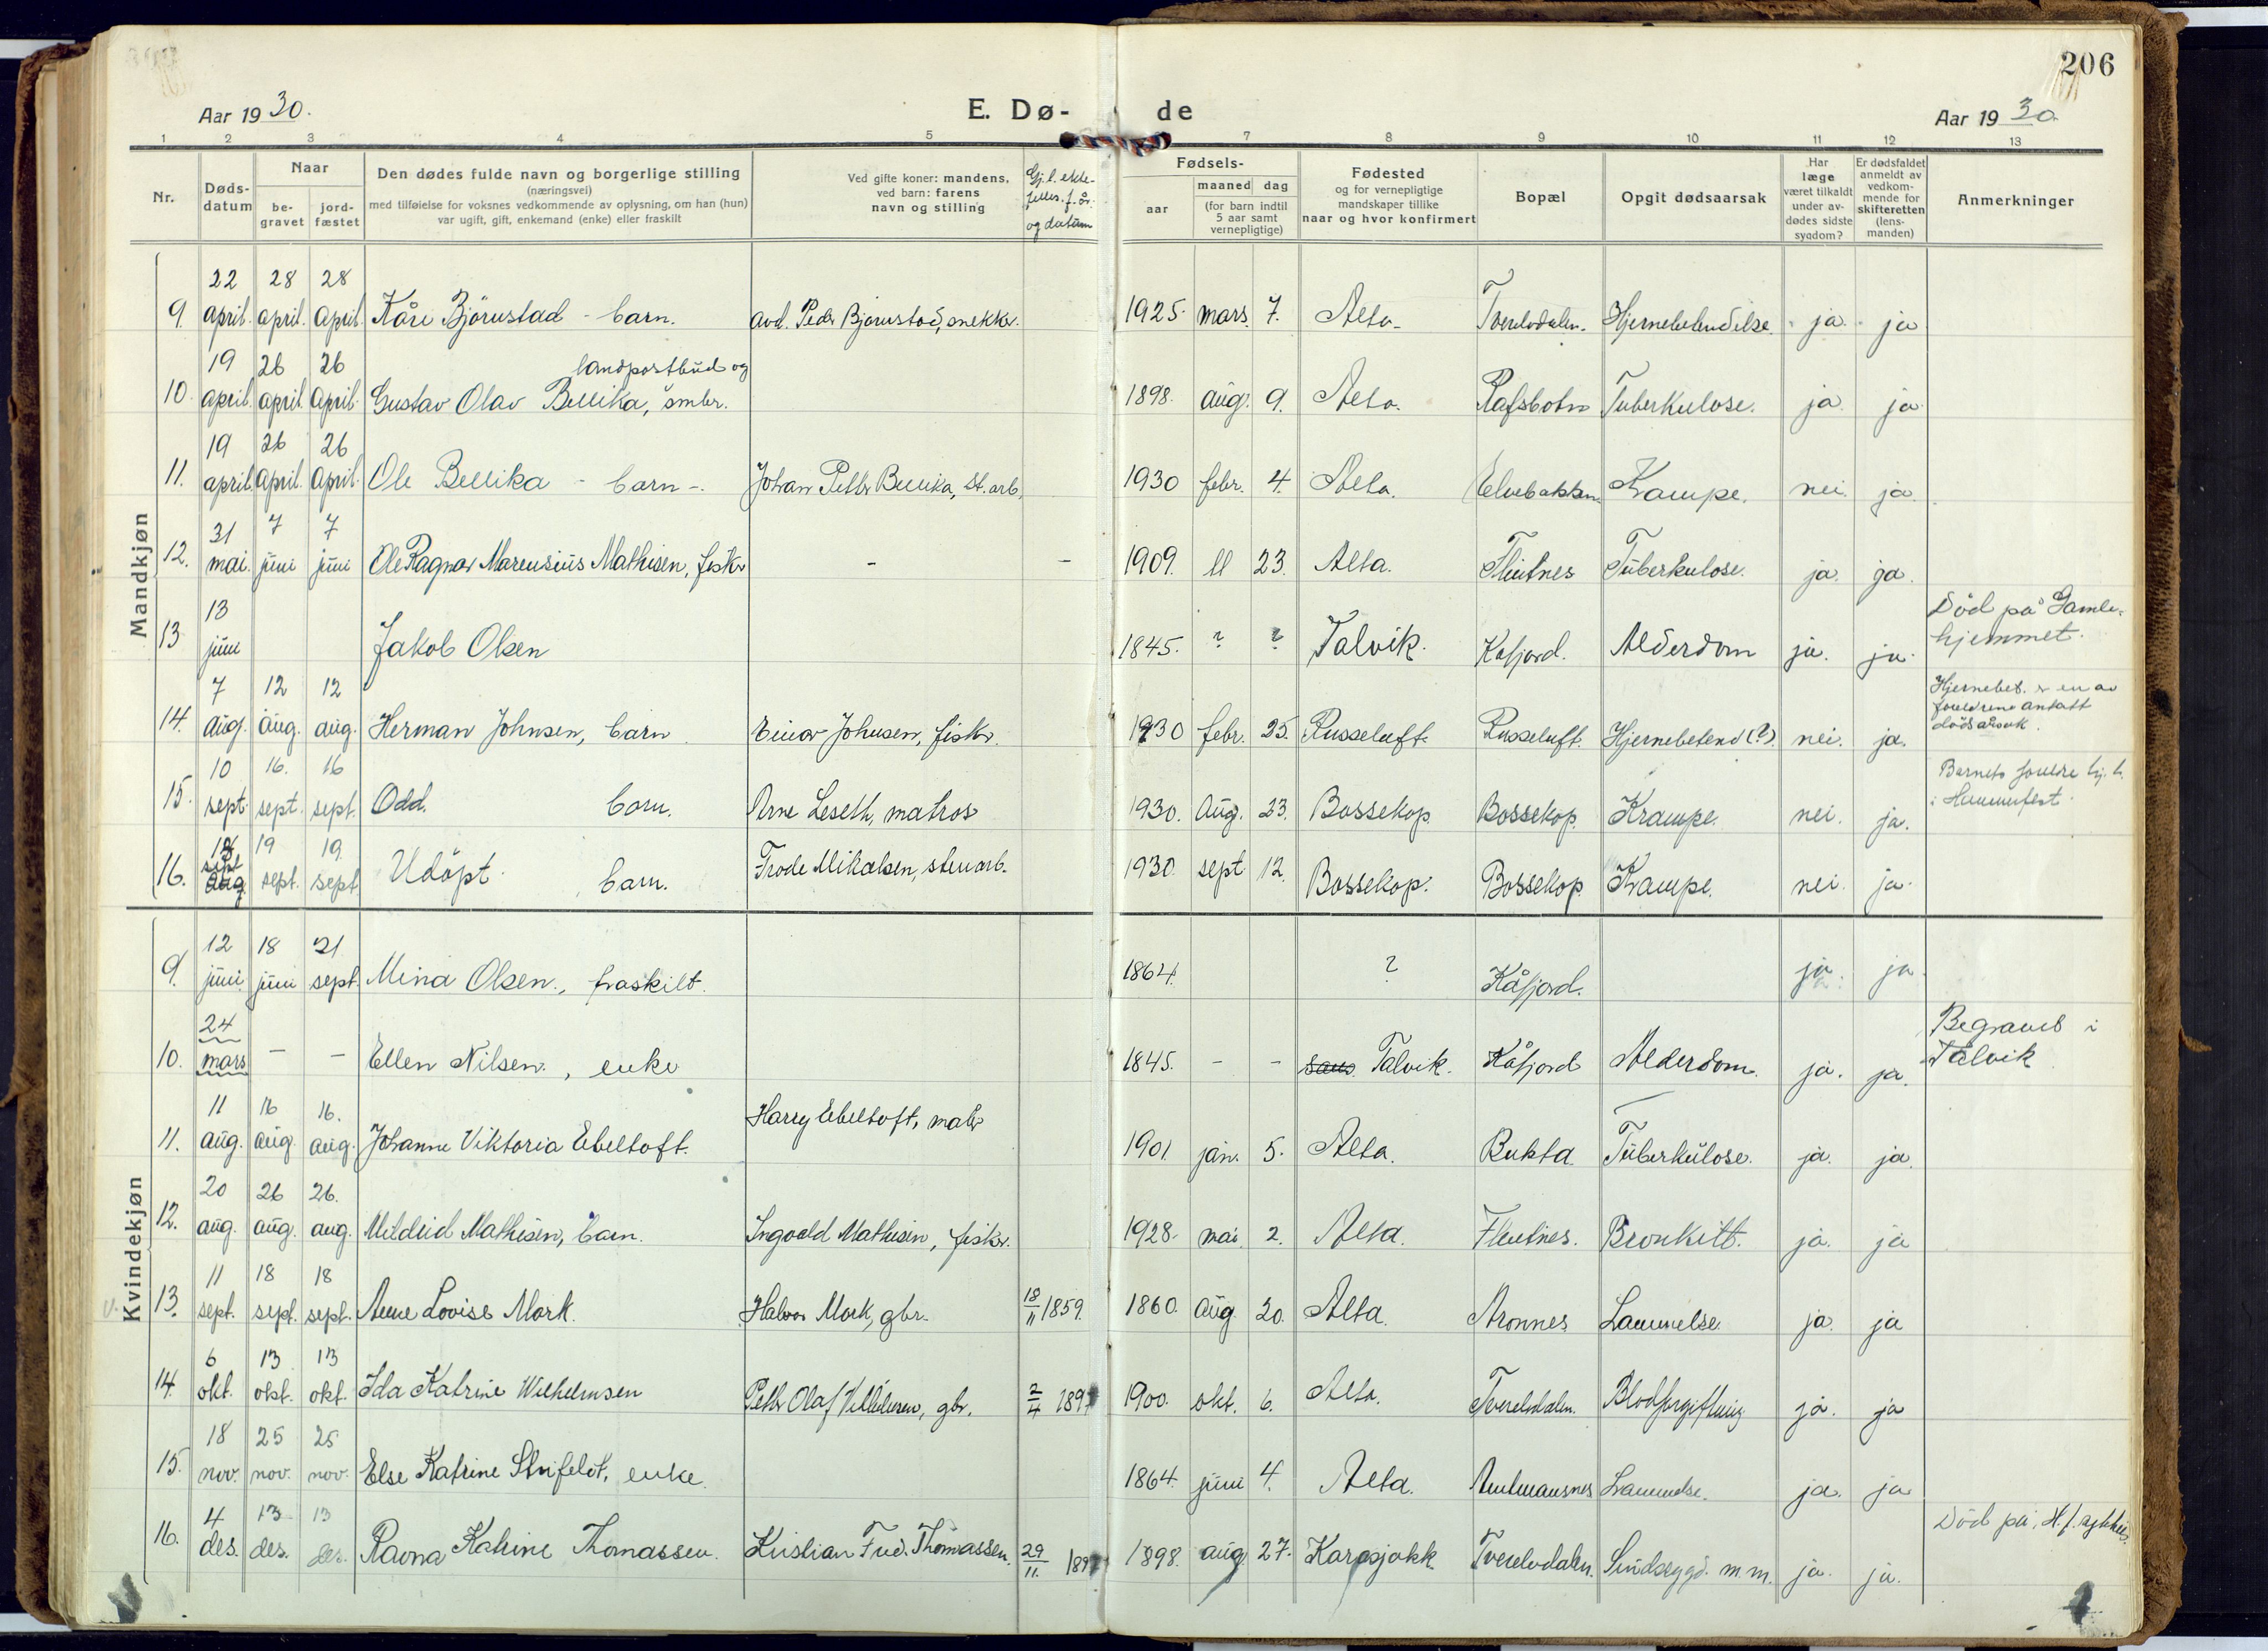 206
Aar 1930. E. Dø- de Aar 1930
1 2 3 4 5 7 8 9 10 11 12 13
Nr. Døds-datum Naar be-gravet jord-fæstet
Den dødes fulde navn og borgerlige stilling
(næringsvei)
med tilføielse for voksnes vedkommende av oplysning, om han (hun)
var ugift, gift, enkemand (enke) eller fraskilt
Ved gifte koner: mandens,
ved barn: farens
navn og stilling
Gj.l. ekte-
felles f. år.
og datum
Fødsels-
aar maaned dag
(for barn indtil
5 aar samt
vernepligtige)
Fødested
og for vernepligtige
mandskaper tillike
naar og hvor konfirmert
Bopæl
Opgit dødsaarsak
Har
læge
været tilkaldt
under av-
dødes sidste
sygdom?
Er dødsfaldet
anmeldt av
vedkom-
mende for
skifteretten
(lens-
manden)
Anmerkninger
Mandkjøn
9. 22 april. 28 april. 28 april. Kåre Björnstad - barn. avd. Peder Bjørnstad, snekker. 1925. mars. 7. Alta. Tverelvdalen. Hjernebetendelse. ja. ja
10. 19 april. 26 april. 26 april. Gustav Olav Bellika, landpostbud og småbr. 1898. aug. 9. Alta. Rafsbotn Tuberkulose. ja. ja
11. 19 april. 26 april. 26 april. Ole Bellika - barn -. Johan Petter Bellika, st.arb. 1930 febr. 4. Alta. Elvebakken. Krampe. nei. ja.
12. 31 mai. 7 juni 7 juni Ole Ragnar Marensius Mathisen, fisker - - 1909. 11 23. Alta. Flintnes Tuberkulose. ja. ja.
13 13 juni Jakob Olsen 1845. ? ? Talvik. Kåfjord. Alderdom ja. ja. Död på Gamle-hjemmet.
14. 7 aug. 12 aug. 12 aug. Herman Johnsen, barn Einar Johnsen, fisker. 1930 febr. 25. Russeluft. Russeluft. Hjernebetend (?). nei. ja. Hjernebet. er en av foreldrene antatt dödsårsak.
15. 10 sept. 16. sept. 16 sept. Odd. barn. Arne Leseth, matros 1930. Aug. 23. Bossekop. Bossekop. Krampe. nei. ja. Barnets foreldre hj. h. i Hammerfest.
16. 12 sept 19 sept. 19. sept Udöpt. barn. Frode Mikalsen, stenarb. 1930. sept. 12. Bossekop. Bossekop Krampe. nei. ja.
Kvindekjøn
9. 12 juni. 18 juni 21 sept. Mina Olsen., fraskilt. 1864. ? Kåfjord. ja. ja
10. 24 mars - - Ellen Nilsen., enke 1845. - - Talvik. Kåfjord Alderdom. ja. ja. Begravet i Talvik
11. 11 aug. 16 aug. 16. aug. Johanne Viktoria Ebeltoft. Harry Ebeltoft, maler 1901. jan. 5. Alta. Bukta. Tuberkulose. ja. ja.
12. 20 aug. 26 aug. 26. aug. Mildrid Mathisen, barn. Ingvald Mathisen, fisker. 1928. mai. 2. Alta. Flintnes. Bronkitt. ja. ja
13. 11 sept. 18 sept. 18 sept. Anne Lovise Mork. Halvor Mork, gbr. 18/11 1859. 1860. aug. 20. Alta. Aronnes Lammelse. ja. ja
14. 6 okt. 13 okt. 13 okt. Ida Katrine Wilhelmsen Petter Olaf Vilhelmsen, gbr. 2/4 189 1900. okt. 6. Alta. Tverelvdalen. Blodforgiftning ja. ja
15. 18 nov. 25 nov. 25 nov. Else Katrine Strifeldt, enke. 1864. juni 4. Alta. Amtmansnes Lammelse. ja. ja
16. 4 des. 13 des. 13 des. Ravna Katrine Thomassen. Kristian Fred. Thomassen. 29/11. 189 1898. aug. 27. Karasjokk Tverelvdalen. Sindssygd. m.m. ja. ja. Död på H.f. sykehus